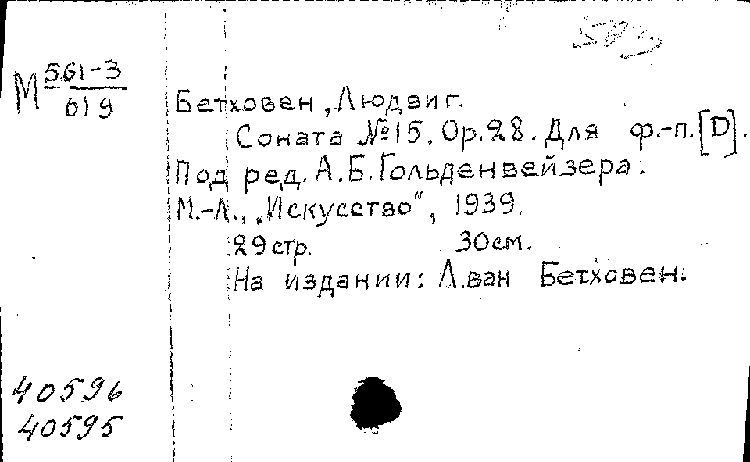 М 561-3
619
Бетховен, Людвиг.
Соната №15. Op.28. Для ф.-п. [D].
Под ред. А.Б. Гольденвейзера.
М.-Л., „Искусство", 1939.
29 стр. 30 см.
На издании: Л. ван Бетховен.
40596
40595